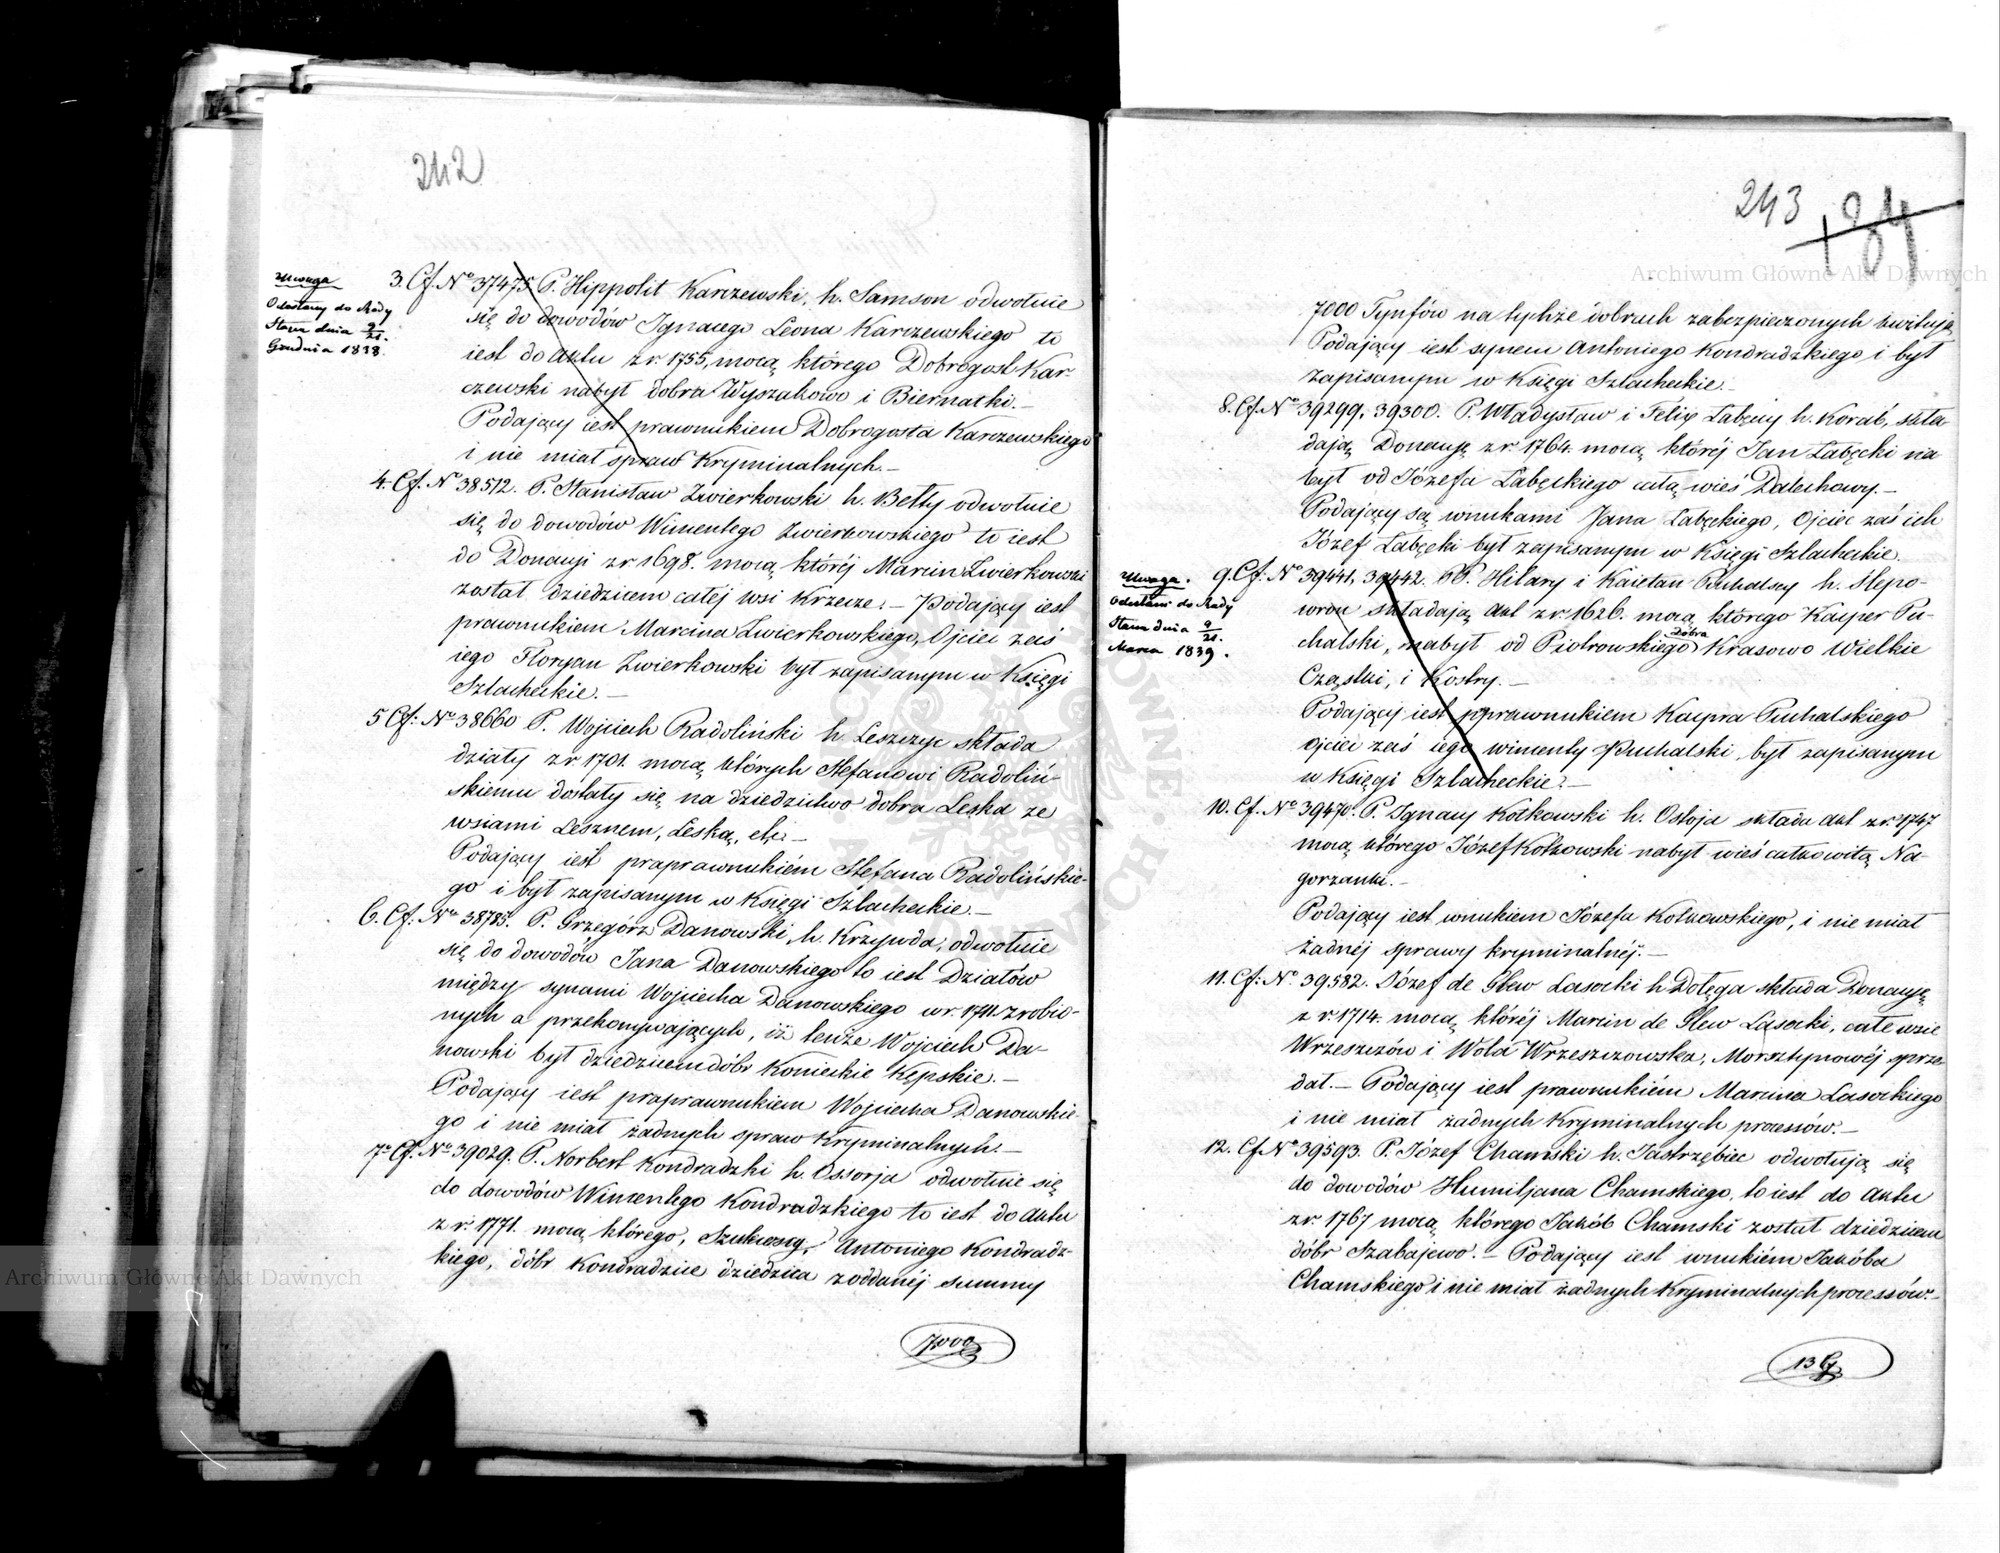 242
Uwaga
Odesłany do Rady
Stanu dnia 9/21.
Grudnia 1838.
3. Cf. Nº 37475 P. Hippolit Karczewski, h. Samson odwołuie
się do dowodów Ignacego Leona Karczewskiego to
iest do Aktu z r. 1755, mocą którego Dobrogost Kar-
czewski nabył dobra Wyszakowo i Biernatki.—
Podaiący iest prawnukiem Dobrogosta Karczewskiego
i nie miał spraw Kryminalnych.—
4. Cf. Nº 38512. P. Stanisław Zwierkowski h. Bełty odwołuie
się do dowodów Wincentego Zwierkowskiego to iest
do Donacyi z r 1698. mocą któréj Marcin Zwierkowski
został dziedzicem całej wsi Krzecze.— Podaiący iest
prawnukiem Marcina Zwierkowskiego, Ojciec zaś
iego Floryan Zwierkowski był zapisanym w Księgi
Szlacheckie.—
5 Cf: Nº 38660 P. Wojciech Radoliński h. Leszczyc składa
działy z r 1701. mocą których Stefanowi Radoliń-
skiemu dostały się na dziedzictwo dobra Leska ze
wsiami Lesznem, Leską, etc.—
Podaiący iest praprawnukiém Stefana Radolińskie-
go i był zapisanym w Księgi Szlacheckie.—
6. Cf: Nº 38785. P. Grzegórz Danowski, h. Krzywda, odwołuie
się do dowodów Jana Danowskiego to iest Działów
między synami Wojciecha Danowskiego w r. 1711 zrobio-
nych a przekonywaiących, iż tenże Wojciech Da-
nowski był dziedzicem dóbr Konieckie Kępskie.—
Podaiący iest praprawnukiem Wojciecha Danowskie-
go i nie miał żadnych spraw Kryminalnych.—
7. Cf. Nº 39029. P. Norbert Kondradzki h. Ossorja odwołuie się
do dowodów Wincentego Kondradzkiego to iest do Aktu
z r. 1771. mocą którego, Antoniego Kondradz-
kiego, dóbr Kondradzice dziedzica z oddanéj summy
7000
243
184
7000 Tynfów na tychże dobrach zabezpieczonych kwituią
Podaiący iest synem Antoniego Kondradzkiego i był
zapisanym w Księgi Szlacheckie.—
8. Cf. Nº 39299, 39300. P. Władysław i Felix Łabęccy h. Korab, skła
daią Donacyę z r. 1764. mocą któréj Jan Łabęcki na
był od Józefa Łabęckiego całą wieś Dalechowy.—
Podaiący są wnukami Jana Łabęckiego, Ojciec zaś ich
Józef Łabęcki był zapisanym w Księgi Szlacheckie.
Uwaga.
Odesłani do Rady
Stanu dnia 9/21.
Marca 1839.
9. Cf: Nº 39441, 39442. PP. Hilary i Kaietan Puchalscy h. Ślepo-
wron składaią Akt z r. 1626. mocą którego Kasper Pu-
chalski, nabył od Piotrowskiego dobra Krasowo Wielkie
Cząstki, i Kostry.—
Podaiący iest pprawnukiem Kacpra Puchalskiego
Ojciec zaś iego Wincenty Puchalski, był zapisanym
w Księgi Szlacheckie.—
10. Cf. Nº 39470. P. Ignacy Kołkowski h. Ostoja składa Akt z r. 1747
mocą którego Józef Kołkowski nabył wieś całkowitą Na-
gorzanki.—
Podaiący iest wnukiem Józefa Kołkowskiego, i nie miał
żadnéj sprawy kryminalnéj.—
11. Cf: Nº 39582. Józef de Glew Lasocki h Dołęga składa Donacyę
z r 1714. mocą któréj Marcin de Glew Lasocki, całe wsie
Wrzeszczów i Wola Wrzeszczowska, Morsztynowéj sprze
dał.— Podaiący iest prawnukiém Marcina Lasockiego
i nie miał żadnych Kryminalnych processów.—
12. Cf. Nº 39593. P. Józef Chamski h. Jastrzębiec odwołuią się
do dowodów Humiljana Chamskiego, to iest do aktu
z r. 1767 mocą którego Jakób Chamski został dziedzicem
dóbr Szabajewo.— Podaiący iest wnukiém Jakóba
Chamskiego i nie miał żadnych Kryminalnych processów.—
13 Cf
Archiwum Główne Akt Dawnych
Archiwum Główne Akt Dawnych